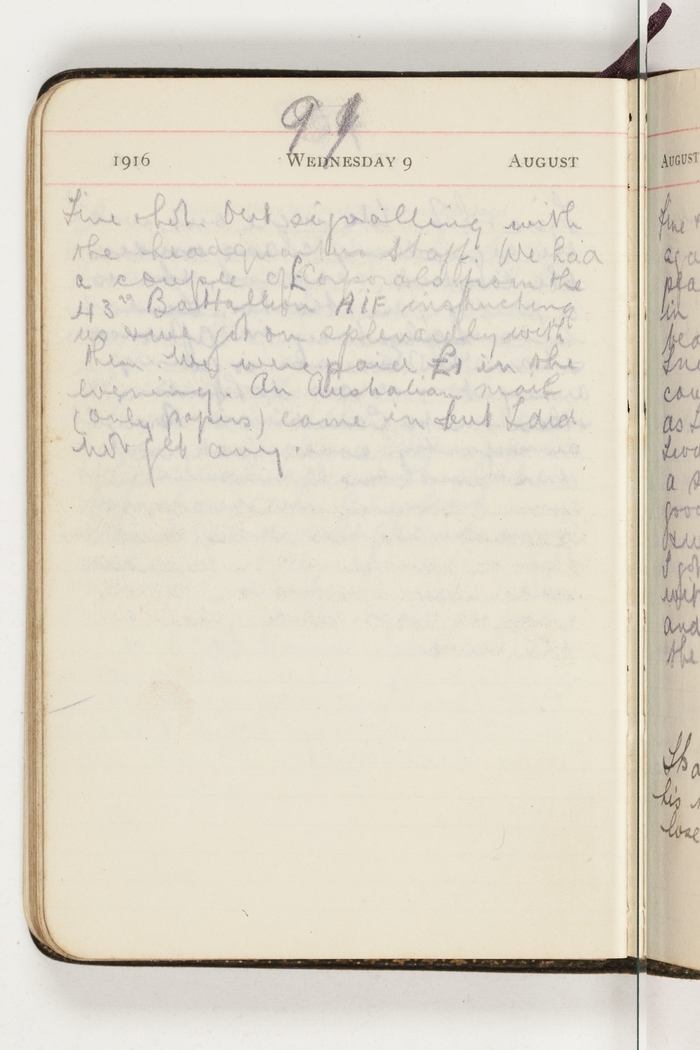 91
1916 WEDNESDAY 9 AUGUST
Fine & hot. Out signalling with
the headquarters Staff. We had
a couple of Corporals from the
43rd Battallion AIF instructing
us & we got on splendidly with
them. We were paid £1 in the
evening. An Australian mail
(only papers) came in but I did
not get any.
AUGUST
Fine
aga
pla
in
bea
cou
as I
a
good
I got
with
and
the
his
lose